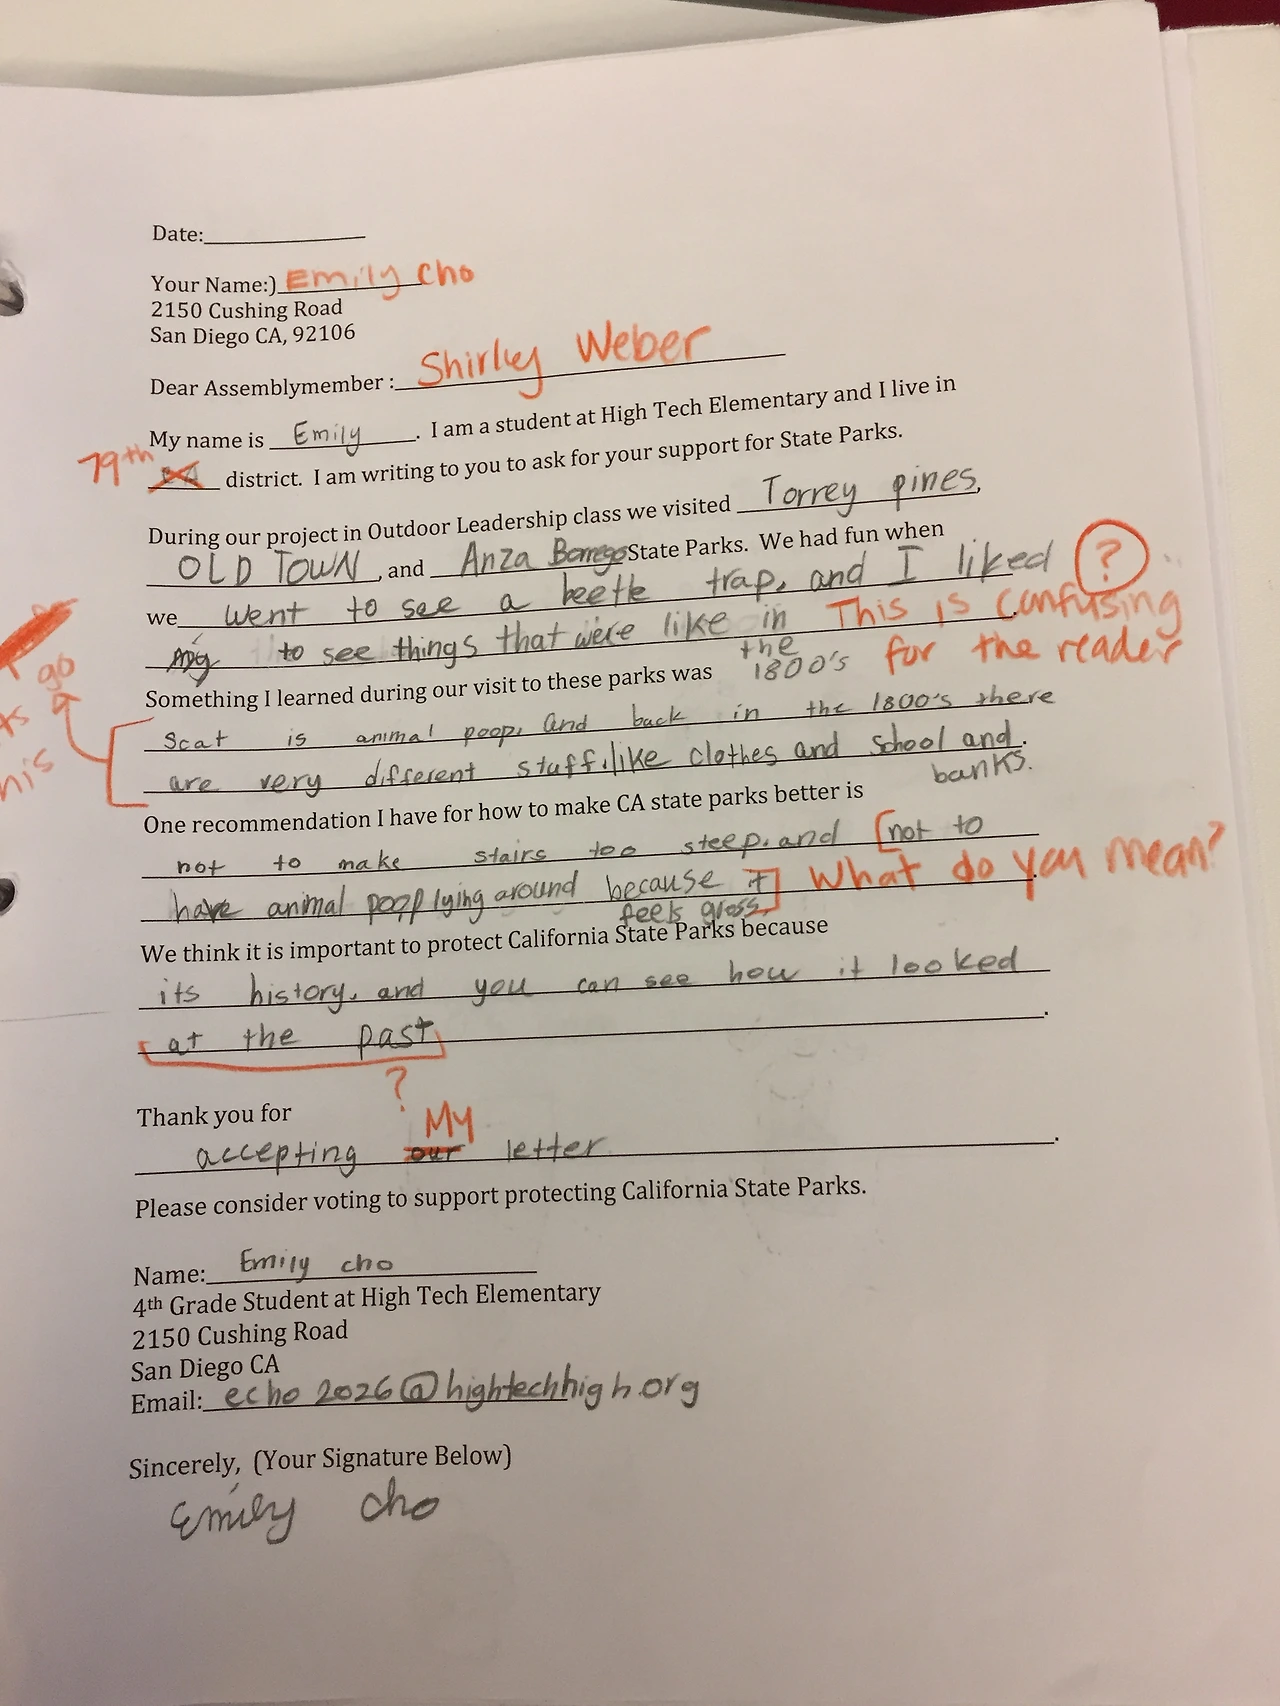 Date:
Your Name:) Emily Cho
2150 Cushing Road
San Diego CA, 92106
Dear Assemblymember : Shirley Weber
My name is Emily. I am a student at High Tech Elementary and I live in
79th district. I am writing to you to ask for your support for State Parks.
During our project in Outdoor Leadership class we visited Torrey pines,
OLD TOWN, and Anza Borrego State Parks. We had fun when
we went to see a beetle trap, and I liked ?
to see things that were like in the 1800's
This is confusing
for the reader
go
Something I learned during our visit to these parks was
Scat is animal poop, and back in the 1800's there
are very different stuff.like clothes and school and.
banks.
One recommendation I have for how to make CA state parks better is
not to make stairs too steep, and not to
have animal poop lying around because it
feels gross.
What do you mean?
We think it is important to protect California State Parks because
its history, and you can see how it looked
at the past.
?
Thank you for
accepting our My letter.
Please consider voting to support protecting California State Parks.
Name: Emily cho
4th Grade Student at High Tech Elementary
2150 Cushing Road
San Diego CA
Email: echo2026@hightechhigh.org
Sincerely, (Your Signature Below)
Emily cho